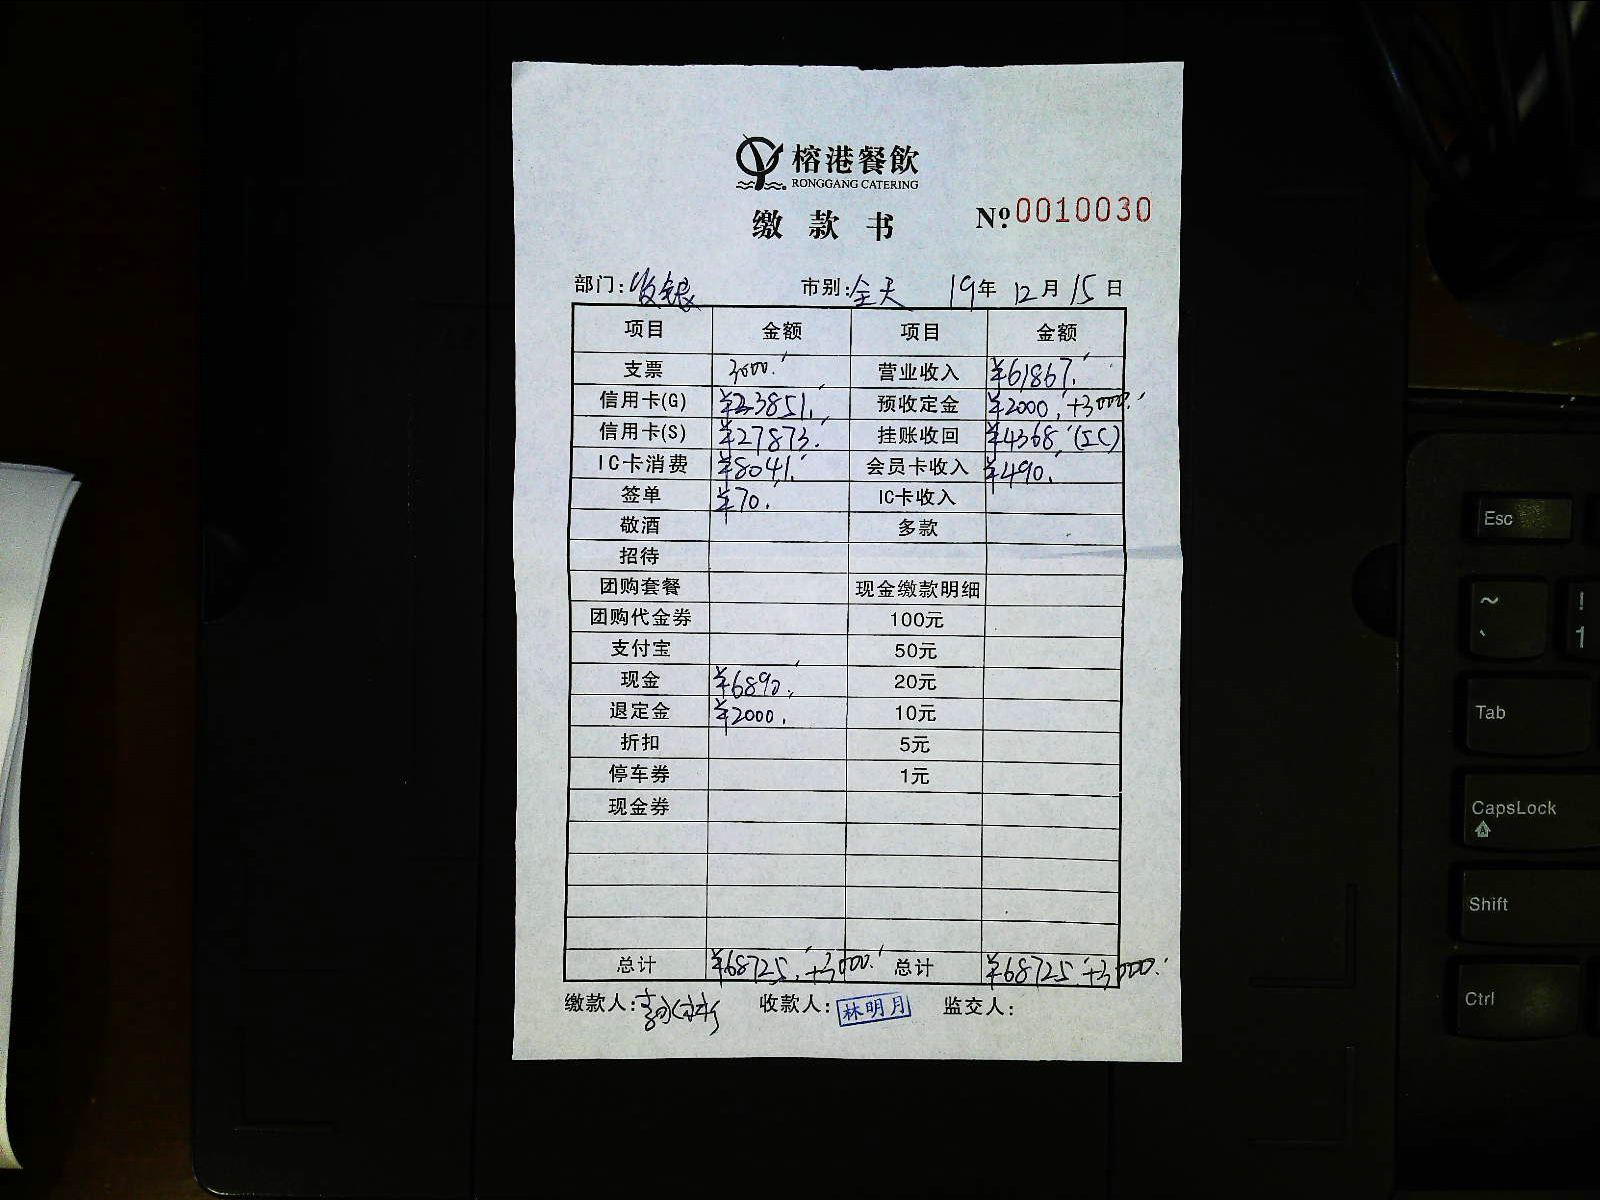 榕港餐飲
RONGGANG CATERING
缴款书 Nº 0010030
部门: 收银 市别: 全天 19年 12月 15日
项目 金额 项目 金额
支票 3000. 营业收入 ¥61867.
信用卡(G) ¥23851. 预收定金 ¥2000. +3000.
信用卡(S) ¥27873. 挂账收回 ¥4368. (IC)
IC卡消费 ¥8041. 会员卡收入 ¥490.
签单 ¥70. IC卡收入
敬酒 多款
招待
团购套餐 现金缴款明细
团购代金券 100元
支付宝 50元
现金 ¥6890. 20元
退定金 ¥2000. 10元
折扣 5元
停车券 1元
现金券
总计 ¥68725. +3000. 总计 ¥68725. +3000.
缴款人: 收款人: 林明月 监交人:
Esc
~ ` ! 1
Tab
CapsLock
Shift
Ctrl